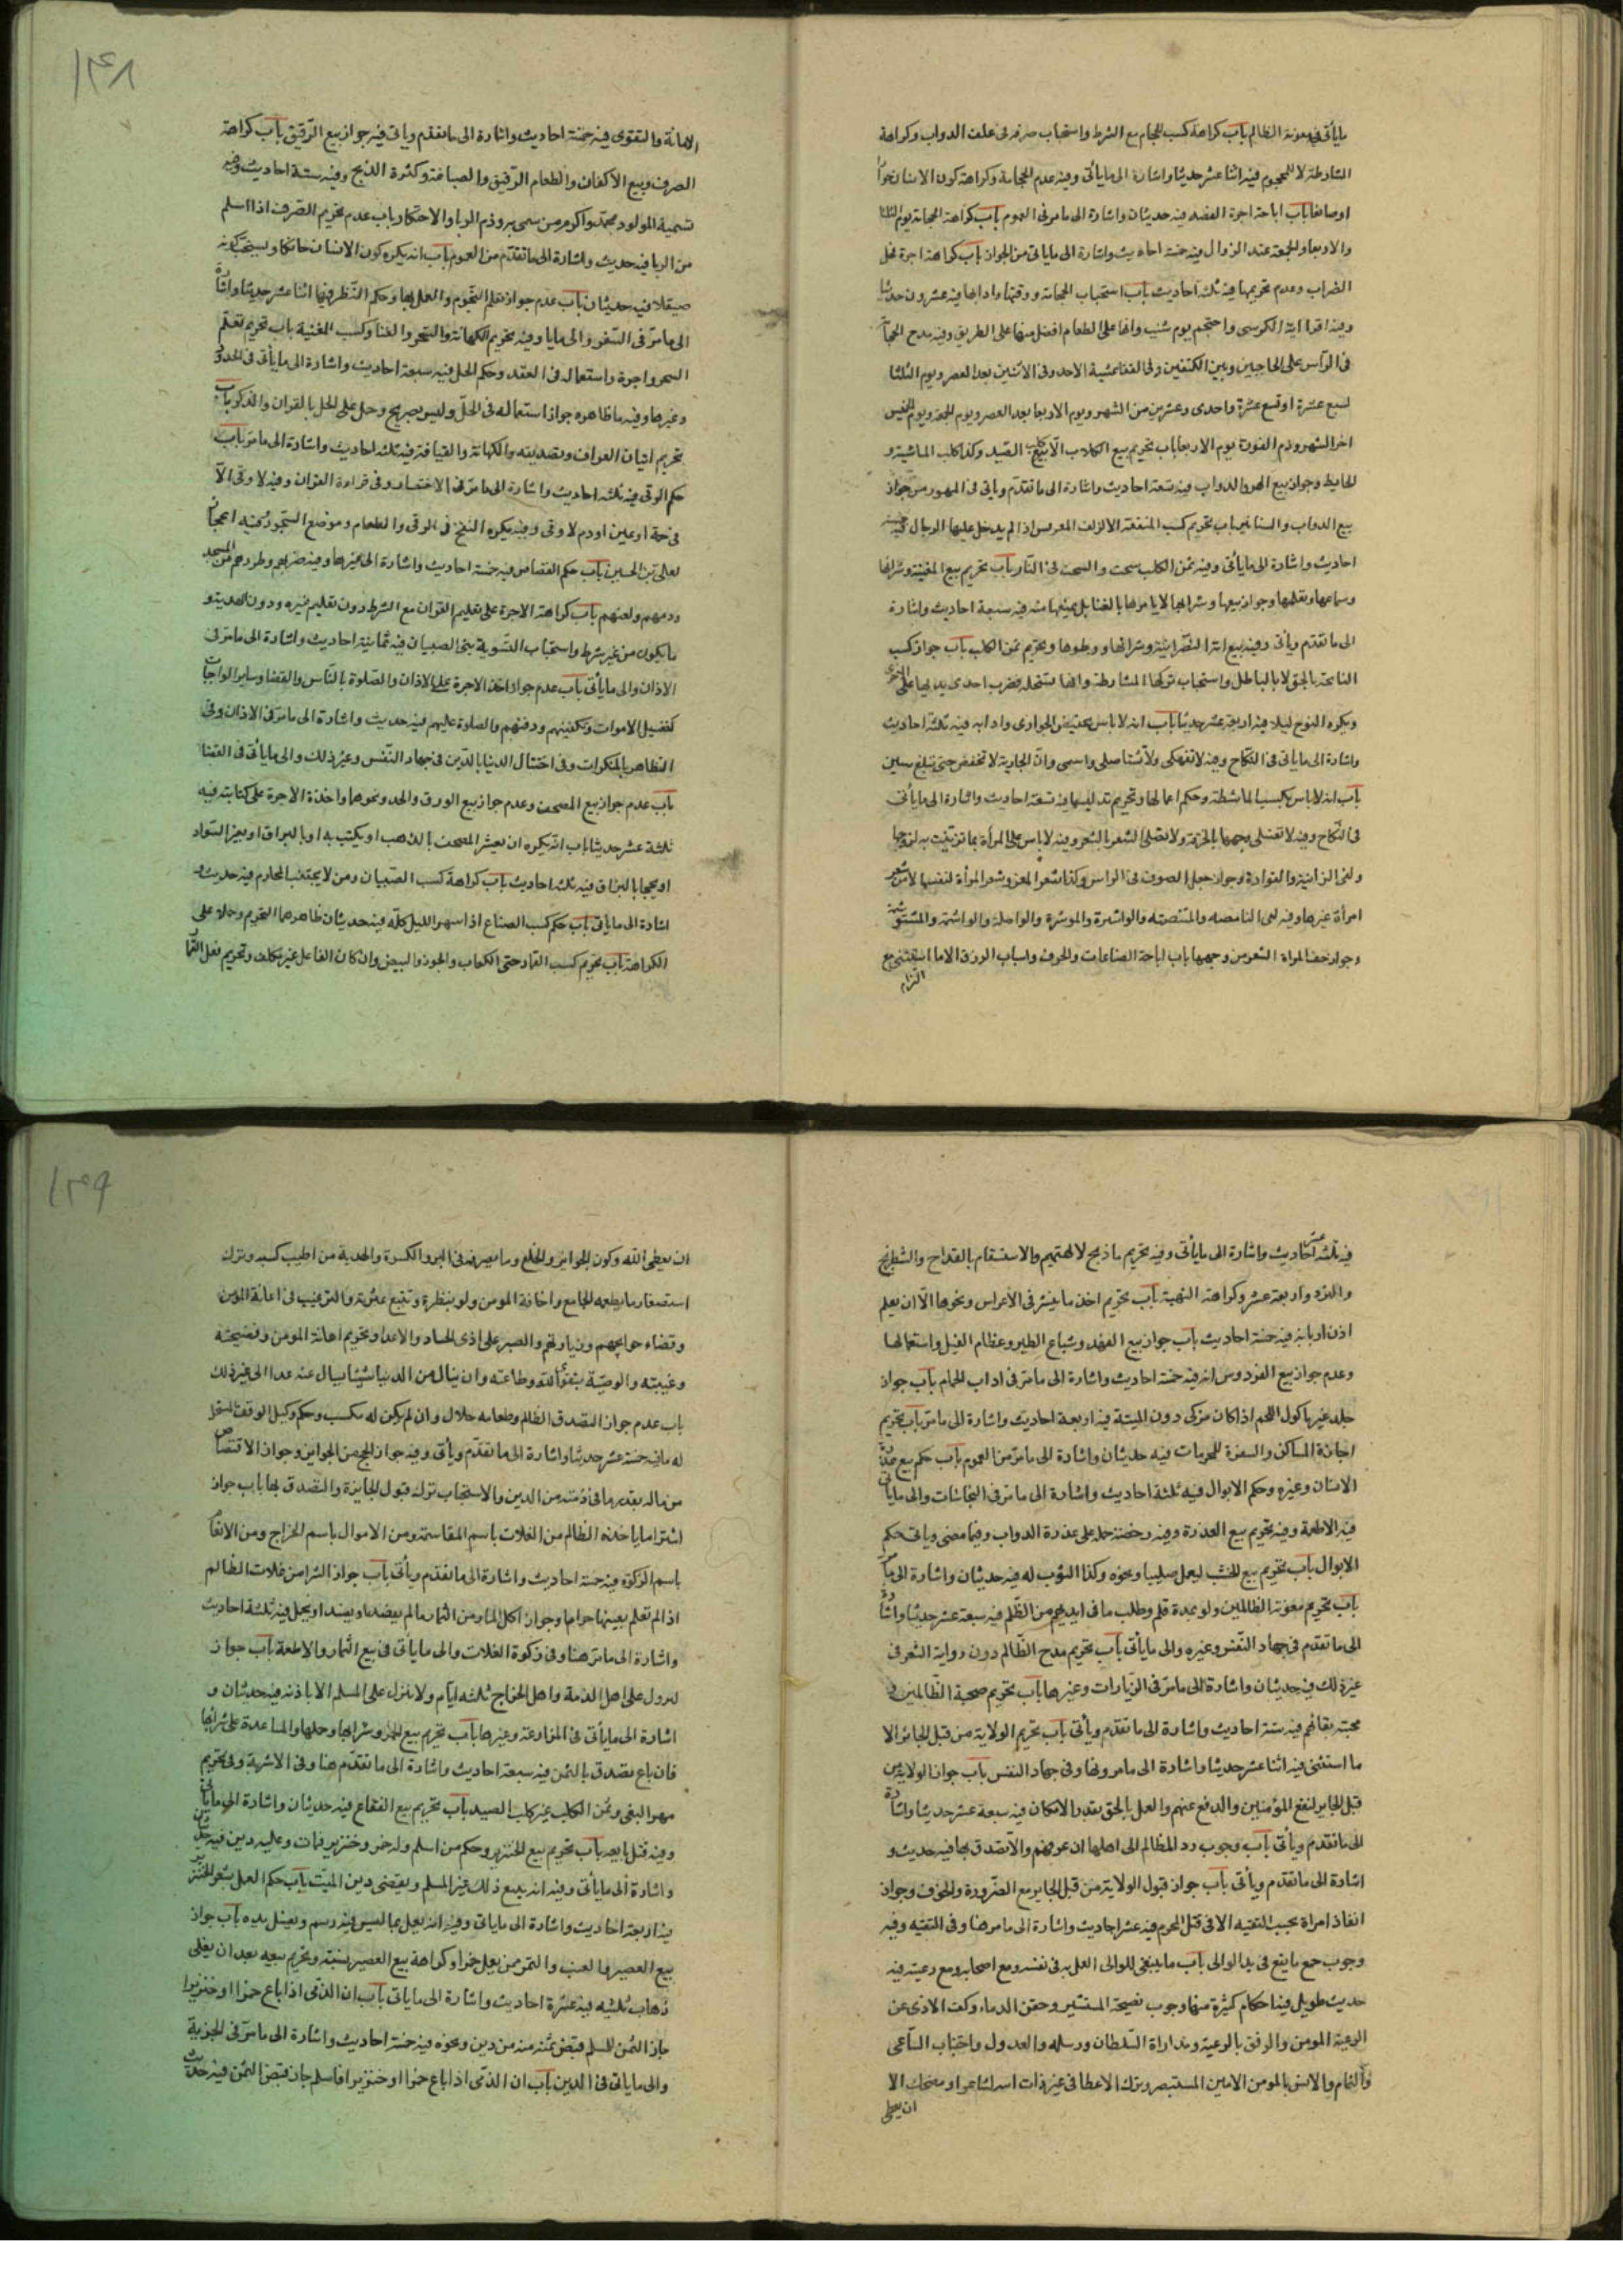 ما يأتى فى معونة الظالم باب كراهة كسب الحجام مع الشرط واستحباب صرفه فى علف الدواب وكراهة
المشارطة لا للمحجوم فيه اثنا عشر حديثا واشارة الى ما يأتى وفيه عدم الحجامة وكراهة كون الانسان
او صائغا باب اباحة اجرة الفصد فيه حديثان واشارة الى ما مر فى العموم باب كراهة الحجامة يوم الثلثا
والاربعا والجمعة عند الزوال فيه خمسة احاديث واشارة الى ما ياتى من الجواز باب كراهة اجرة فحل
الضراب وعدم تحريمها فيه ثلثة احاديث باب استحباب الحجامة ووقتها وادابها فيه عشرون حديثا
وفيه اقرا اية الكرسى واحتجم يوم شئت وانها على الطعام افضل منها على الطريق وفيه مدح الحجامة
فى الرأس على الحاجبين وبين الكتفين وفى القفا عشية الاحد وفى الاثنين بعد العصر ويوم الثلثا
لسبع عشرة او تسع عشرة واحدى وعشرين من الشهر ويوم الاربعا بعد العصر ويوم الجمعة ويوم الخميس
اخر الشهر وذم يوم الاربعا باب تحريم بيع الكلاب الا كلب الصيد وكذا كلب الماشية و
الحايط وجواز بيع الهر والدواب فيه تسعة احاديث واشارة الى ما تقدم وياتى فى المهور من جواز
بيع الدواب والسنانير باب تحريم كسب المغنية الا لزف العروس اذا لم يدخل عليها الرجال فيه خمسة
احاديث واشارة الى ما يأتى وفيه ثمن الكلب سحت والسحت فى النار باب تحريم بيع المغنية وشرائها
وسماعها وتعلمها وجواز بيعها وشرائها لا يامرها بالغنا بل يمنعها منه فيه سبعة احاديث واشارة
الى ما تقدم ويأتى وفيه بيع امة النصرانية وشرائها ووطوها وتحريم ثمن الكلب باب جواز كسب
النايحة بالحق لا بالباطل واستحباب تركها المشارطة وانها تستحله بضرب احدى يديها على الاخرى
ويكره النوح ليلا فيه اربعة عشر حديثا باب انه لا باس بخفض الجوارى وادابه فيه ثلثة احاديث
واشارة الى ما ياتى فى النكاح وفيه لا تنهكى ولا تستاصلى واشمى وان الجارية لا تخفض حتى تبلغ سبع سنين
باب انه لا باس بكسب الماشطة وحكم اعمالها وتحريم تدليسها فيه تسعة احاديث واشارة الى ما يأتى
فى النكاح وفيه لا تغسلى وجهها بالخرقة ولا تصلى الشعر بالشعر وفيه لا باس على المرأة بما تزينت به لزوجها
ولعن الزانية والقوادة وجواز جعل الصوف فى الراس وكذا شعر المعز وشعر المرأة لنفسها لا من شعر
امرأة غيرها وفيه لعن النامصة والمنتمصة والواشرة والموشرة والواصلة والواشمة والمستوشمة
وجواز حف المراة الشعر من وجهها باب اباحة الصناعات والحرف واسباب الرزق الا ما استثنى مع
التزام
۱۴۸
الامانة والتقوى فيه خمسة احاديث واشارة الى ما تقدم وياتى فيه جواز بيع الرقيق باب كراهة
الصرف وبيع الاكفان والطعام الرقيق والصياغة وكثرة الذبح وفيه ستة احاديث وفيه
تسمية المولود محمد واكرم من سمى به وذم الربا والاحتكار باب عدم تحريم الصرف اذا سلم
من الربا فيه حديث واشارة الى ما تقدم من العموم باب انه يكره كون الانسان حائكا ويستحب كونه
صيقلا فيه حديثان باب عدم جواز تعلم النجوم والعمل بها وحكم النظر فيها اثنا عشر حديثا واشارة
الى ما مر فى السفر والى ما ياتى وفيه تحريم الكهانة والسحر والغنا وكسب المغنية باب تحريم تعلم
السحر واجرة واستعماله فى العقد وحكم الحل فيه سبعة احاديث واشارة الى ما يأتى فى الحدود
وغيرها وفيه ما ظاهره جواز استعماله فى الحل وليس بصريح وحمل على الحل بالقران والذكر باب
تحريم اتيان العراف وتصديقه والكهانة والقيافة فيه ثلثة احاديث واشارة الى ما مر باب
حكم الرقى فيه ثلثة احاديث واشارة الى ما مر فى الاحتضار وفى قراءة القران وفيه لا رقى الا
فى حمة او عين او دم لا رقى وفيه يكره النفخ فى الرقى والطعام وموضع السجود
لعلى بن الحسين باب حكم القصاص فيه خمسة احاديث واشارة الى غيرها وفيه ضربهم وطردهم من المسجد
وذمهم ولعنهم باب كراهة الاجرة على تعليم القران مع الشرط دون تعليم غيره ودون الهدية و
ما يكون من غير شرط واستحباب التسوية بين الصبيان فيه ثمانية احاديث واشارة الى ما مر فى
الاذان والى ما يأتى باب عدم جواز اخذ الاجرة على الاذان والصلوة بالناس والقضا وساير الواجبات
كتغسيل الاموات وتكفينهم ودفنهم والصلوة عليهم فيه حديث واشارة الى ما مر فى الاذان وفى
التظاهر بالمنكرات وفى اختتال الدنيا بالدين فى جهاد النفس وغير ذلك والى ما يأتى فى القضا
باب عدم جواز بيع المصحف وعدم جواز بيع الورق والجلد ونحوها واخذ الاجرة على كتابته فيه
ثلثة عشر حديثا باب انه يكره ان يعشر المصحف بالذهب او يكتب به او بالبزاق او بغير السواد
او يمحى بالبزاق فيه ثلثة احاديث باب كراهة كسب الصبيان ومن لا يجتنب المحارم فيه حديث و
اشارة الى ما يأتى باب حكم كسب الصناع اذا سهروا الليل كله فيه حديثان ظاهرهما التحريم وحملا على
الكراهة باب تحريم كسب القمار حتى الكعاب والجوز والبيض وان كان الفاعل غير مكلف وتحريم فعل القمار
فيه ثلثة عشر احاديث واشارة الى ما يأتى وفيه تحريم ما ذبح لالهتهم والاستقسام بالقداح والشطرنج
والنرد واربعة عشر وكراهة النهبة باب تحريم اخذ ما ينثر فى الأعراس ونحوها الا ان يعلم
اذن اربابه فيه خمسة احاديث باب جواز بيع الفهد وسباع الطير وعظام الفيل واستعمالها
وعدم جواز بيع القرد وس انه فيه خمسة احاديث واشارة الى ما مر فى اداب الحمام باب جواز
جلد غير ماكول اللحم اذا كان مزكى دون الميتة فيه اربعة احاديث واشارة الى ما مر باب تحريم
اجارة المساكن والسفن للمحرمات فيه حديثان واشارة الى ما مر من العموم باب حكم بيع عذرة
الانسان وغيره وحكم الابوال فيه ثلثة احاديث واشارة الى ما مر فى النجاسات والى ما ياتى
فى الاطعمة وفيه تحريم بيع العذرة وفيه رخصة حمله على عذرة الدواب وفيما مضى وياتى حكم
الابوال باب تحريم بيع الخشب ليعمل صليبا ونحوه وكذا التوب له فيه حديثان واشارة الى ما مر
باب تحريم معونة الظالمين ولو بمدة قلم وطلب ما فى ايديهم من الظلم فيه سبعة عشر حديثا واشارة
الى ما تقدم فى جهاد النفس وغيره والى ما يأتى باب تحريم مدح الظالم دون رواية الشعر فى
غير ذلك فيه حديثان واشارة الى ما مر فى الزيارات وغيرها باب تحريم صحبة الظالمين و
محبة بقائهم فيه ستة احاديث واشارة الى ما تقدم ويأتى باب تحريم الولاية من قبل الجائر الا
ما استثنى فيه اثنا عشر حديثا واشارة الى ما مر وفى جهاد النفس باب جواز الولاية من
قبل الجاير لنفع المؤمنين والدفع عنهم والعمل بالحق بقدر الامكان فيه سبعة عشر حديثا واشارة
الى ما تقدم ويأتى باب وجوب رد المظالم الى اهلها ان عرفهم والا تصدق بها فيه حديث و
اشارة الى ما تقدم ويأتى باب جواز قبول الولاية من قبل الجاير مع الضرورة والخوف وجواز
انفاذ امره بحسب التقيه الا فى قتل المحرم فيه عشر احاديث واشارة الى ما مر هنا وفى التقيه وفيه
وجوب جمع ما يقع فى يد الوالى باب ما ينبغى للوالى العمل به فى نفسه ومع اصحابه ومع رعيته فيه
حديث طويل فيه احكام كثيرة منها وجوب نصيحة المستشير وحقن الدماء وكف الاذى عن
الرعية المومن والرفق بالرعية ومداراة السلطان ورسله والعدول واجتناب الساعى
والنمام والانس بالمومن الامين المستبصر وترك الاعطا فى غير ذات الله شاعرا او مضحك الا
ان يعطى
۱۴۹
ان يعطى الله وكون الجوايز والخلع وما يصرفه فى البر والكسوة والهدية من اطيب كسبه وترك
استصغار ما يطعمه الجامع واخافة المومن ولو بنظرة وتتبع عثرته والترغيب فى اعانة المومن
وقضاء حوايجهم وزيارتهم والصبر على اذى الحساد والاعدا وتحريم اهانة المومن وفضيحته
وغيبته والوصية بتقوى الله وطاعته وان ينال من الدنيا شيئا يسال عنه غدا الى غير ذلك
باب عدم جواز التصدق الظالم وطعامه حلال وان لم يكن له مكسب وحكم وكيل الوقف المستحل
له ما فيه خمسة عشر حديثا واشارة الى ما تقدم ويأتى وفيه جواز الحج من الجوايز وجواز الاقتصاص
من ماله بقدر ما فى ذمته من الدين والاستحباب ترك قبول الجايزة والتصدق بها باب جواز
اشترا ما ياخذه الظالم من الغلات باسم المقاسمة ومن الاموال باسم الخراج ومن الانعام
باسم الزكوة فيه خمسة احاديث واشارة الى ما تقدم ويأتى باب جواز الشرا من غلات الظالم
اذا لم تعلم بعينها حراما وجواز اكل المار من الثمار ما لم يقصد او يفسد او يحمل فيه ثلثة احاديث
واشارة الى ما مر هنا وفى زكوة الغلات والى ما يأتى فى بيع الثمار والاطعمة باب جواز
نزول على اهل الذمة واهل الخراج ثلثة ايام ولا ينزل على المسلم الا باذنه فيه حديثان و
اشارة الى ما يأتى فى المزارعة وغيرها باب تحريم بيع الخمر وشرائها وحملها والمساعدة على شرائها
فان باع تصدق بالثمن فيه سبعة احاديث واشارة الى ما تقدم هنا وفى الاشربة وفى تحريم
مهر البغى وثمن الكلب غير كلب الصيد باب تحريم بيع الفقاع فيه حديثان واشارة الى ما يأتى
وفيه قتل بايعه باب تحريم بيع الخنزير وحكم من اسلم وله خمر وخنزير فمات وعليه دين فيه حديثان
واشارة الى ما يأتى وفيه انه يبيع ذلك غير المسلم ويقضى دين الميت باب حكم العمل بشعر الخنزير
فيه اربعة احاديث واشارة الى ما ياتى وفيه انه يعمل بما ليس فيه دسم ويغسل يده باب جواز
بيع العصير والعنب والتمر ممن يعمل خمرا وكراهة بيع العصير نسيئة وتحريم بيعه بعد ان يغلى
ذهاب ثلثيه فيه عشرة احاديث واشارة الى ما ياتى باب ان الذمى اذا باع خمرا او خنزيرا
جاز الثمن للمسلم قبض ثمنه منه من دين ونحوه فيه خمسة احاديث واشارة الى ما مر فى الجزية
والى ما ياتى فى الدين باب ان الذمى اذا باع خمرا او خنزيرا فاسلم جاز قبض الثمن فيه حديث